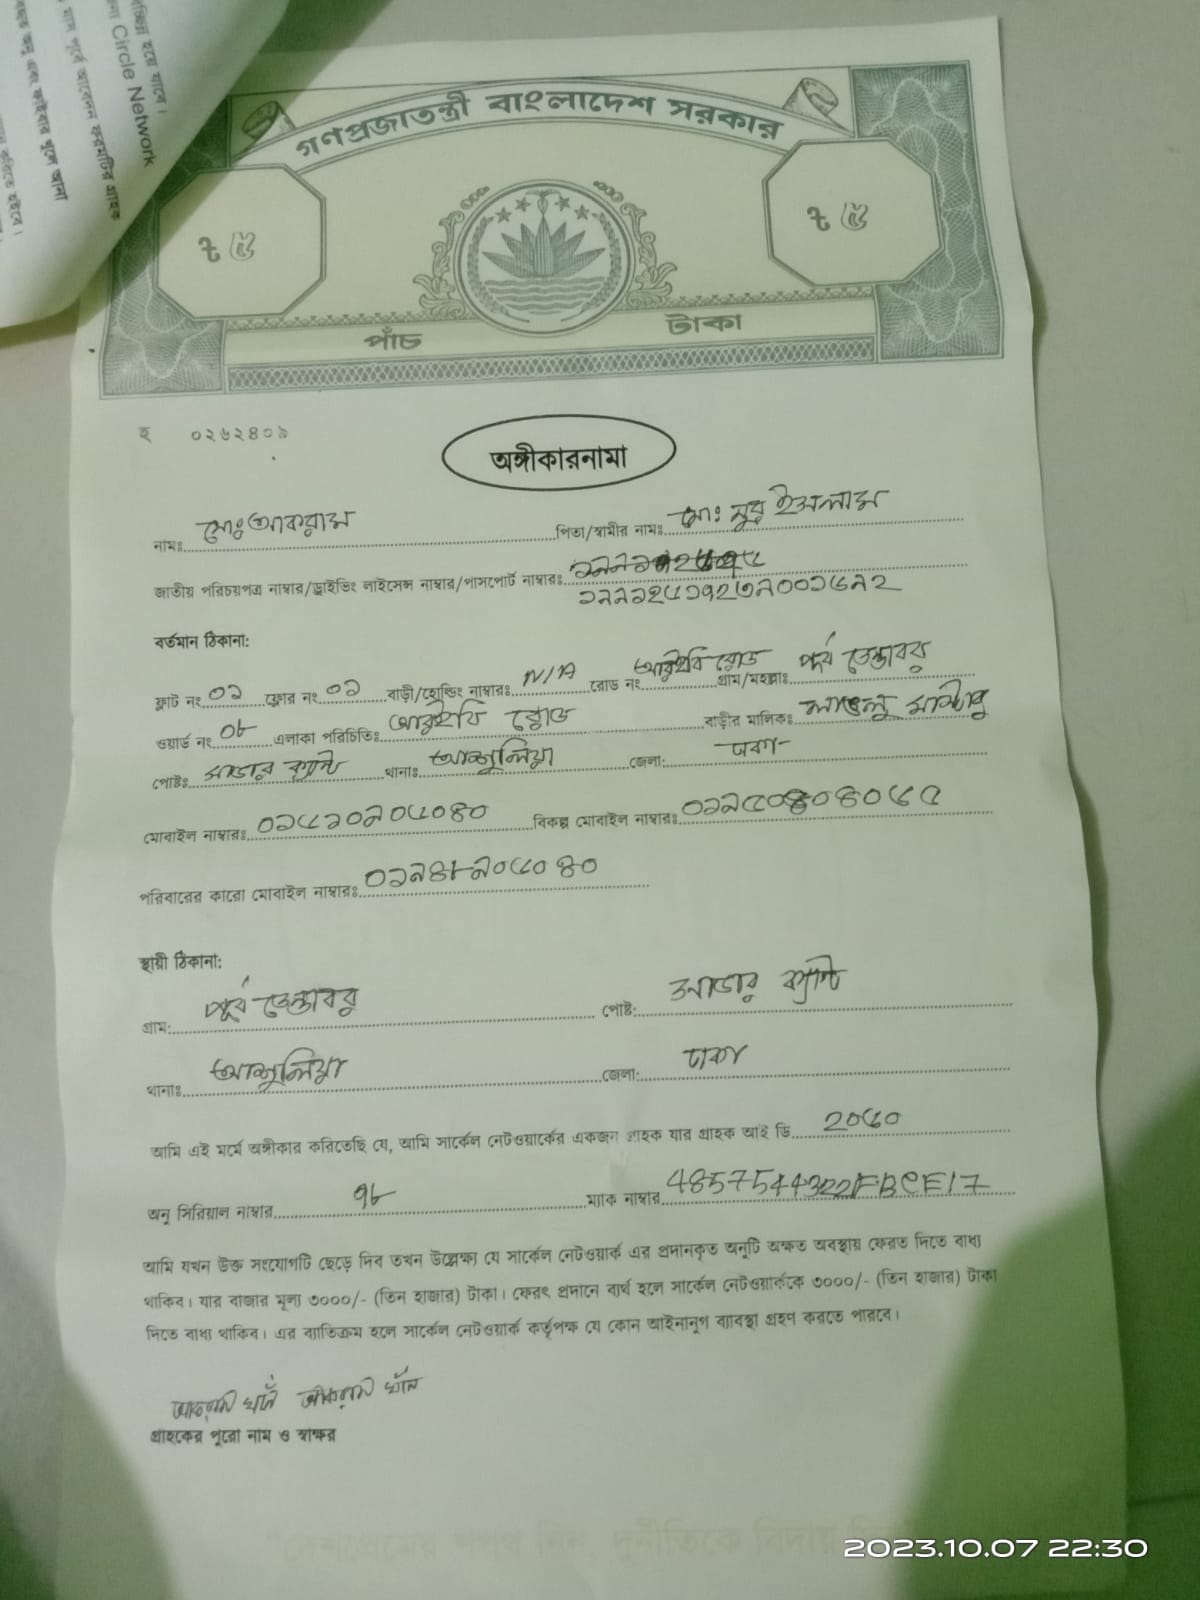 Circle Network
গণপ্রজাতন্ত্রী বাংলাদেশ সরকার
৳ ৫ ৳ ৫
পাঁচ টাকা
হ ০২৬২৪০৯
অঙ্গীকারনামা
নামঃ মোঃ আকরাম পিতা/স্বামীর নামঃ মোঃ নুর ইসলাম
জাতীয় পরিচয়পত্র নাম্বার/ড্রাইভিং লাইসেন্স নাম্বার/পাসপোর্ট নাম্বারঃ
বর্তমান ঠিকানা:
ফ্লাট নং ০১ ফ্লোর নং ০১ বাড়ী/হোল্ডিং নাম্বারঃ N/A রোড নং আরইবি রোড গ্রাম/মহল্লাঃ পূর্ব ডেন্ডাবর
ওয়ার্ড নং ০৮ এলাকা পরিচিতিঃ আরইবি রোড বাড়ীর মালিকঃ
পোষ্টঃ সাভার ক্যান্ট থানাঃ আশুলিয়া জেলা: ঢাকা
মোবাইল নাম্বারঃ ০১৬১০৯০৫০৪০ বিকল্প মোবাইল নাম্বারঃ
পরিবারের কারো মোবাইল নাম্বারঃ ০১৯৪৮৯০৫০৪০
স্থায়ী ঠিকানা:
গ্রাম: পূর্ব ডেন্ডাবর পোষ্ট: সাভার ক্যান্ট
থানাঃ আশুলিয়া জেলা: ঢাকা
আমি এই মর্মে অঙ্গীকার করিতেছি যে, আমি সার্কেল নেটওয়ার্কের একজন গ্রাহক যার গ্রাহক আই ডি ২০৫০
অনু সিরিয়াল নাম্বার ৭৮ ম্যাক নাম্বার
আমি যখন উক্ত সংযোগটি ছেড়ে দিব তখন উল্লেক্ষ্য যে সার্কেল নেটওয়ার্ক এর প্রদানকৃত অনুটি অক্ষত অবস্থায় ফেরত দিতে বাধ্য
থাকিব। যার বাজার মূল্য ৩০০০/- (তিন হাজার) টাকা। ফেরৎ প্রদানে ব্যর্থ হলে সার্কেল নেটওয়ার্ককে ৩০০০/- (তিন হাজার) টাকা
দিতে বাধ্য থাকিব। এর ব্যাতিক্রম হলে সার্কেল নেটওয়ার্ক কর্তৃপক্ষ যে কোন আইনানুগ ব্যাবস্থা গ্রহণ করতে পারবে।
গ্রাহকের পুরো নাম ও স্বাক্ষর
2023.10.07 22:30